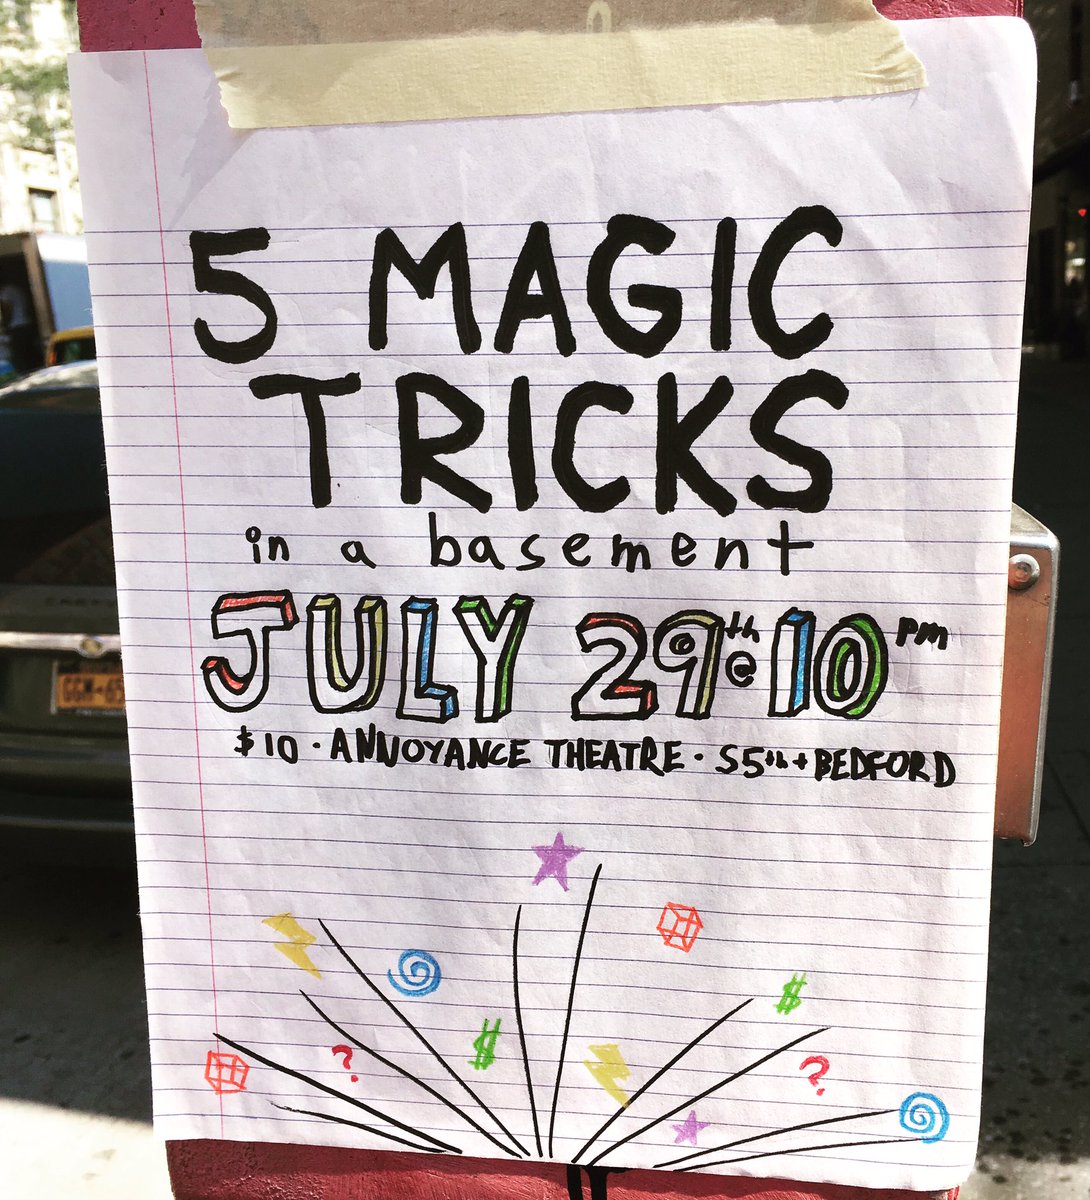 5 MAGIC
TRICKS
in a basement
JULY 29th @ 10 PM
$10 · ANNOYANCE THEATRE · S5th + BEDFORD
$
$
?
?